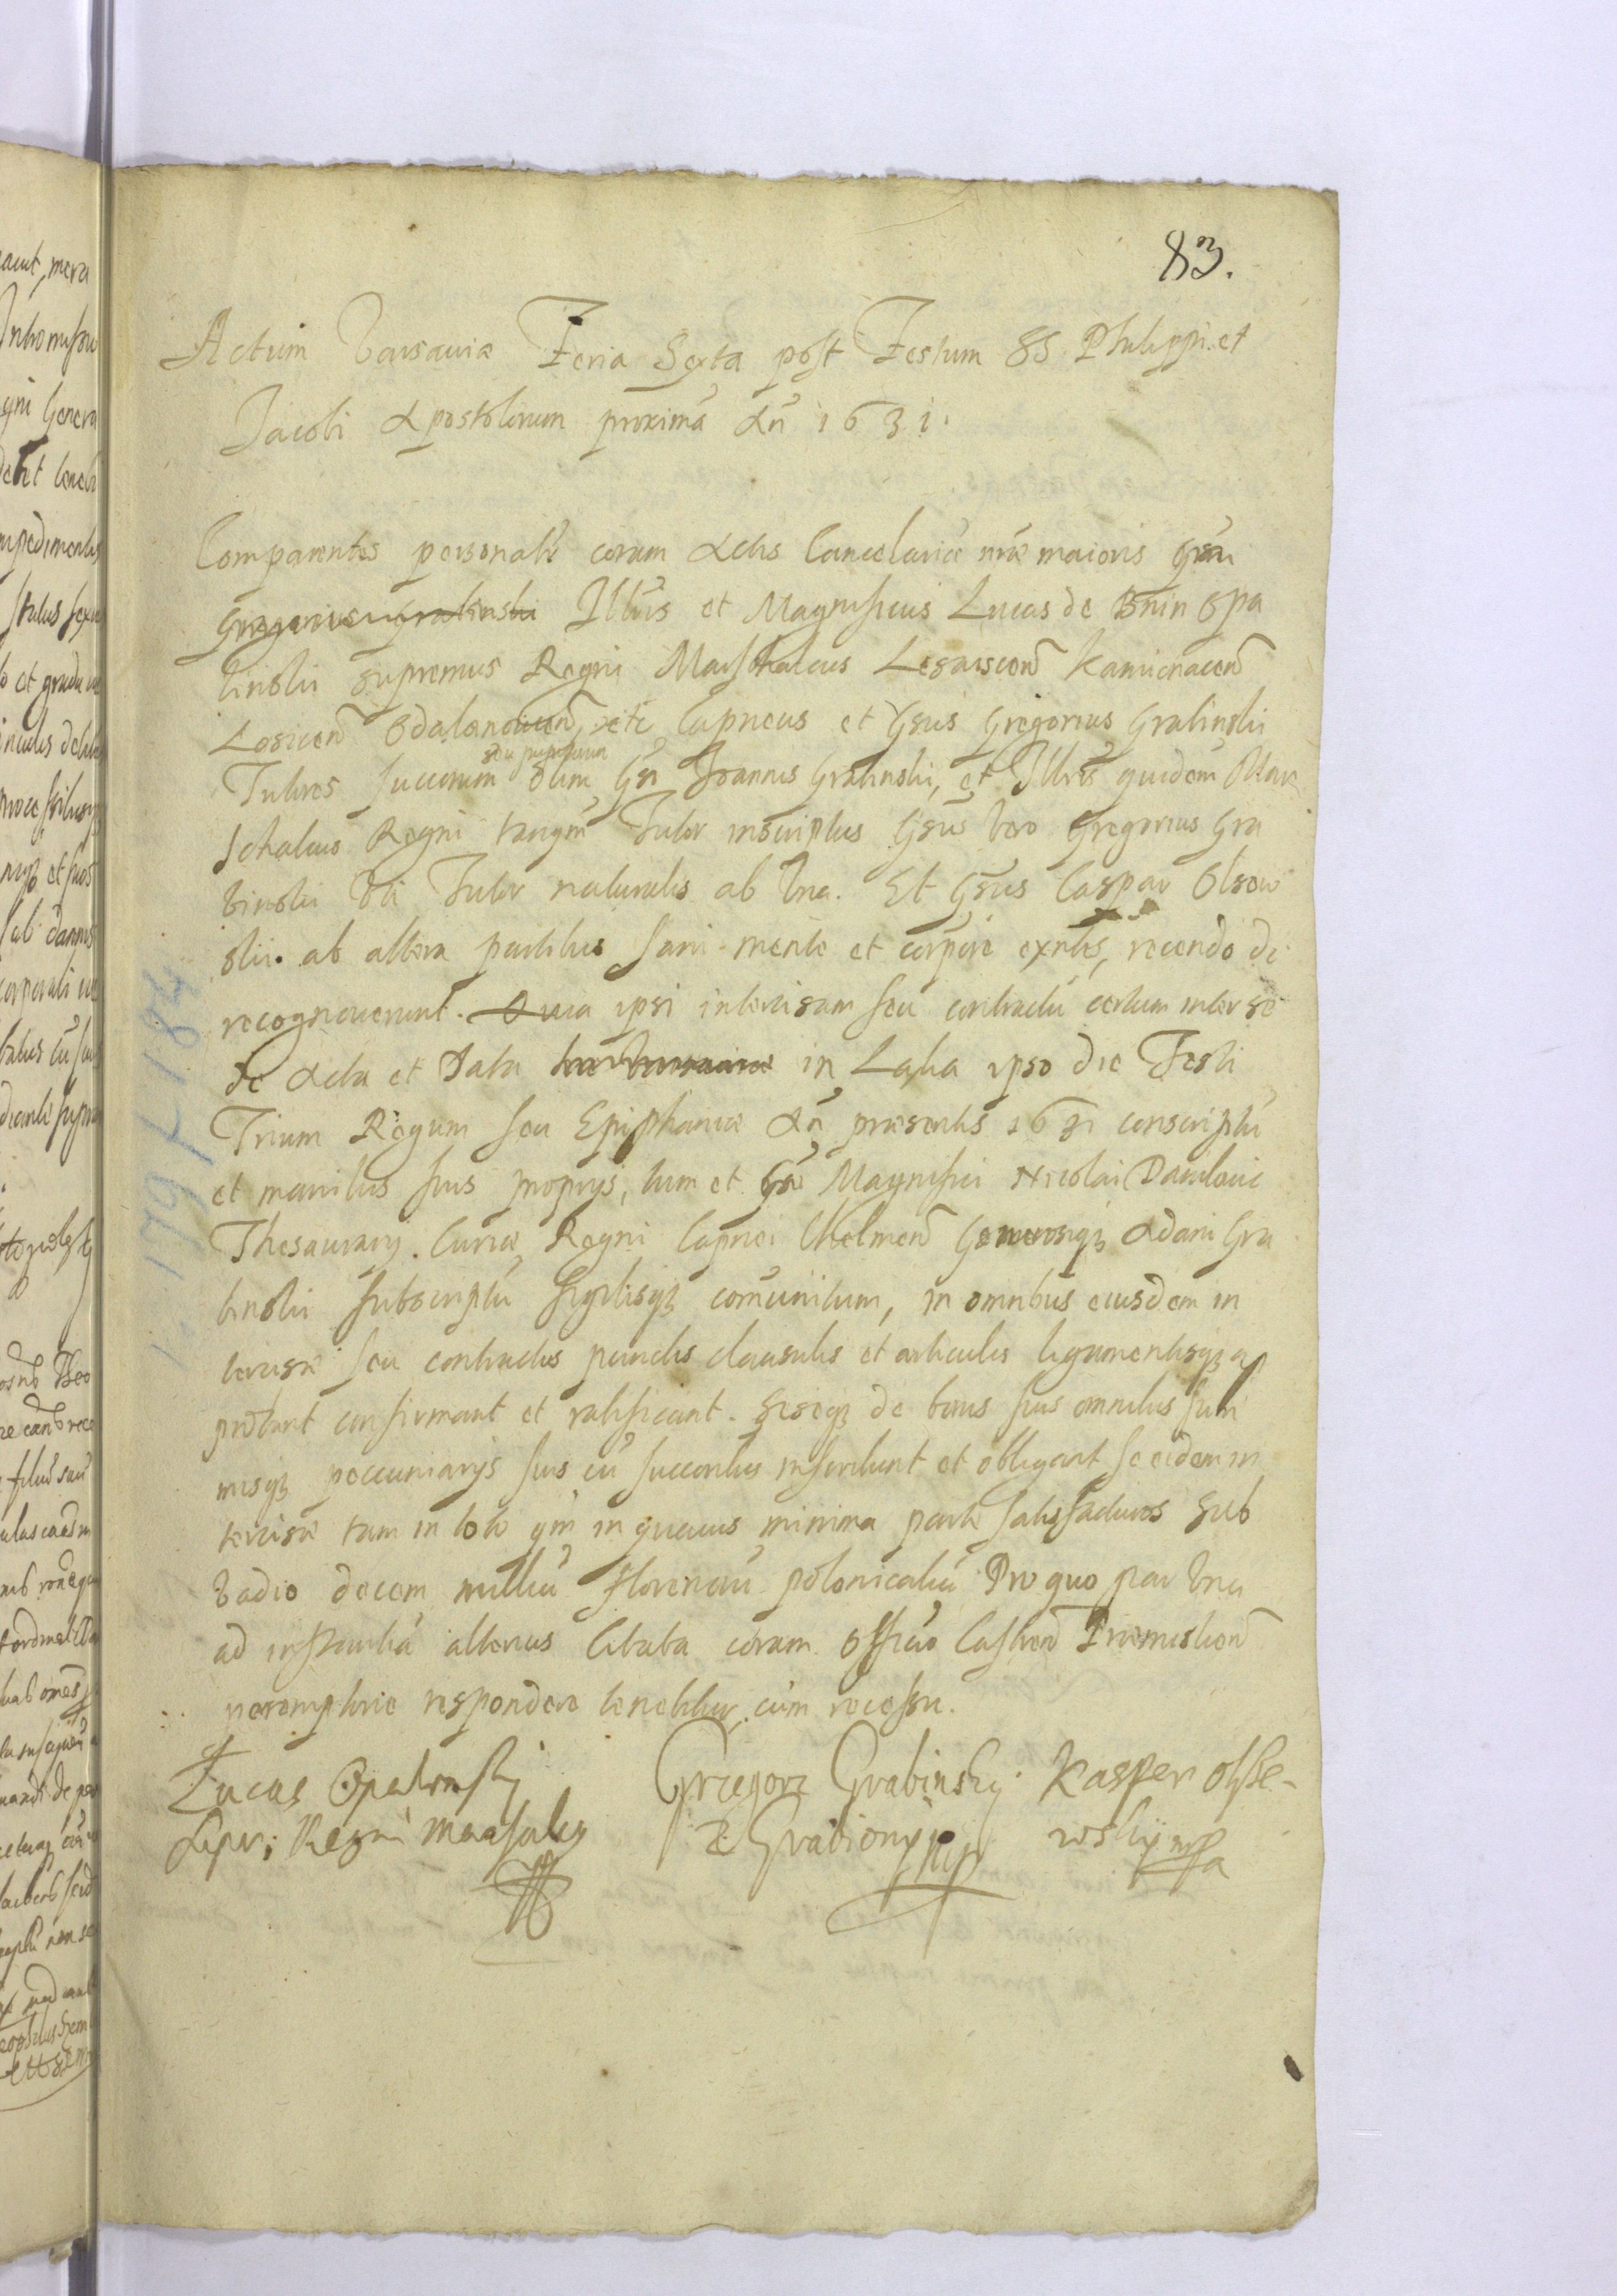 83.
Actum Varsauiæ Feria Sexta post Festum SS Philippi et
Jacobi Apostolorum proxima An 1631.
Comparentes personalr coram Actis Cancelariæ nræ maioris Gsn
Gregorius Grabinski Illris et Magnificus Lucas de Bnin Opa
linski supremus Regni Marschalcus Lesaiscen Kamionacen
Losicen Odalanouen etc Capneus et Gsus Gregorius Grabinski
seu pupillorum
Tutores succorum olim Gsi Joannis Grabinski, et Illris quidem Mar
schalcus Regni tanqm Tutor inscriptus Gsus vero Gregorius Gra
binski Vti Tutor naturalis ab Vna. Et Gsus Caspar Olsow
ski. ab altera partibus sani mente et corpore exntes, recendo
recognouerunt. Quia ipsi intercisam seu contractu certum inter se
de Acta et Data in Laka ipso die Festi
Trium Regum seu Epiphaniæ An præsentis 1631 conscriptu
et manibus suis propriis, tum et Gsi Magnifici Nicolai Danilouic
Thesaurarij Curiæ Regni Capnei Chelmen Generosiqz Adami Gra
binski subscriptu sigilisqz comunitum, in omnibus eiusdem in
tercisæ seu contractus punctis clausulis et articulis ligamentisqz ap
probant confirmant et ratificant. Seseqz de bonis suis omnibus sum
misqz peccuniarijs suis cu succoribus inscribunt et obligant se eidem in
tercisæ tam in toto qm in quauis minima parte satisfacturos sub
Vadio decem milliu florenoru polonicaliu Pro quo par Vna
ad instantia alterius citata coram officio Castren Præmislien
peremptorie respondere tenebitur, cum recessu.
Lucas Opalinski Grzegorz Grabinsky Kasper olsse-
supr; Regni Marsalcus z Grabiony mp wsky mpa